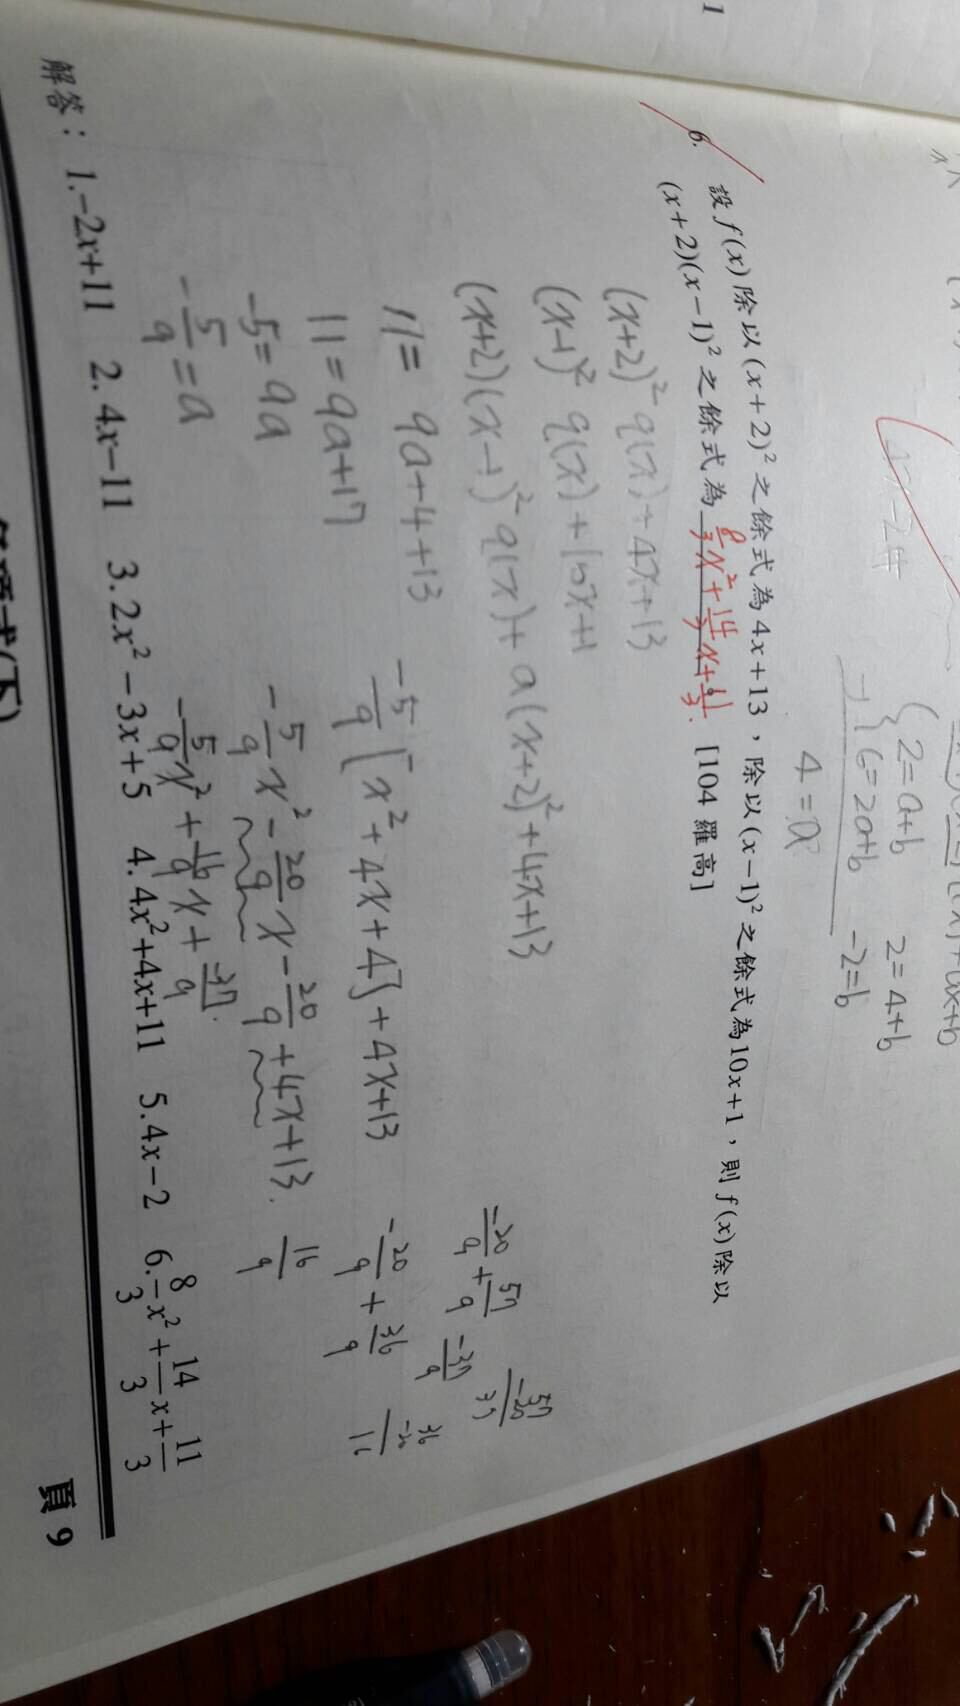 1
6.
設 f(x) 除以 (x+2)² 之餘式為 4x+13，除以 (x-1)² 之餘式為 10x+1，則 f(x) 除以
(x+2)(x-1)² 之餘式為 8/3 x² + 14/3 x + 11/3. [104 羅高]
2=a+b 2=4+b
6=2a+b -2=b
4=a
(x+2)² q(x)+4x+13
(x-1)² q(x)+10x+1
(x+2)(x-1)² q(x)+a(x+2)²+4x+13
11=9a+4+13
11=9a+17
-5=9a
-5/9=a
-5/9[x²+4x+4]+4x+13
-5/9 x² - 20/9 x - 20/9 + 4x+13.
-5/9 x² + 16/9 x + -37/9.
-20/9 + 57/9
-37/9
57
-20
37
-20/9 + 36/9
36
-20
16
16/9
解答：1.-2x+11 2. 4x-11 3. 2x²-3x+5 4. 4x²+4x+11 5. 4x-2 6. 8/3 x² + 14/3 x + 11/3
頁 9